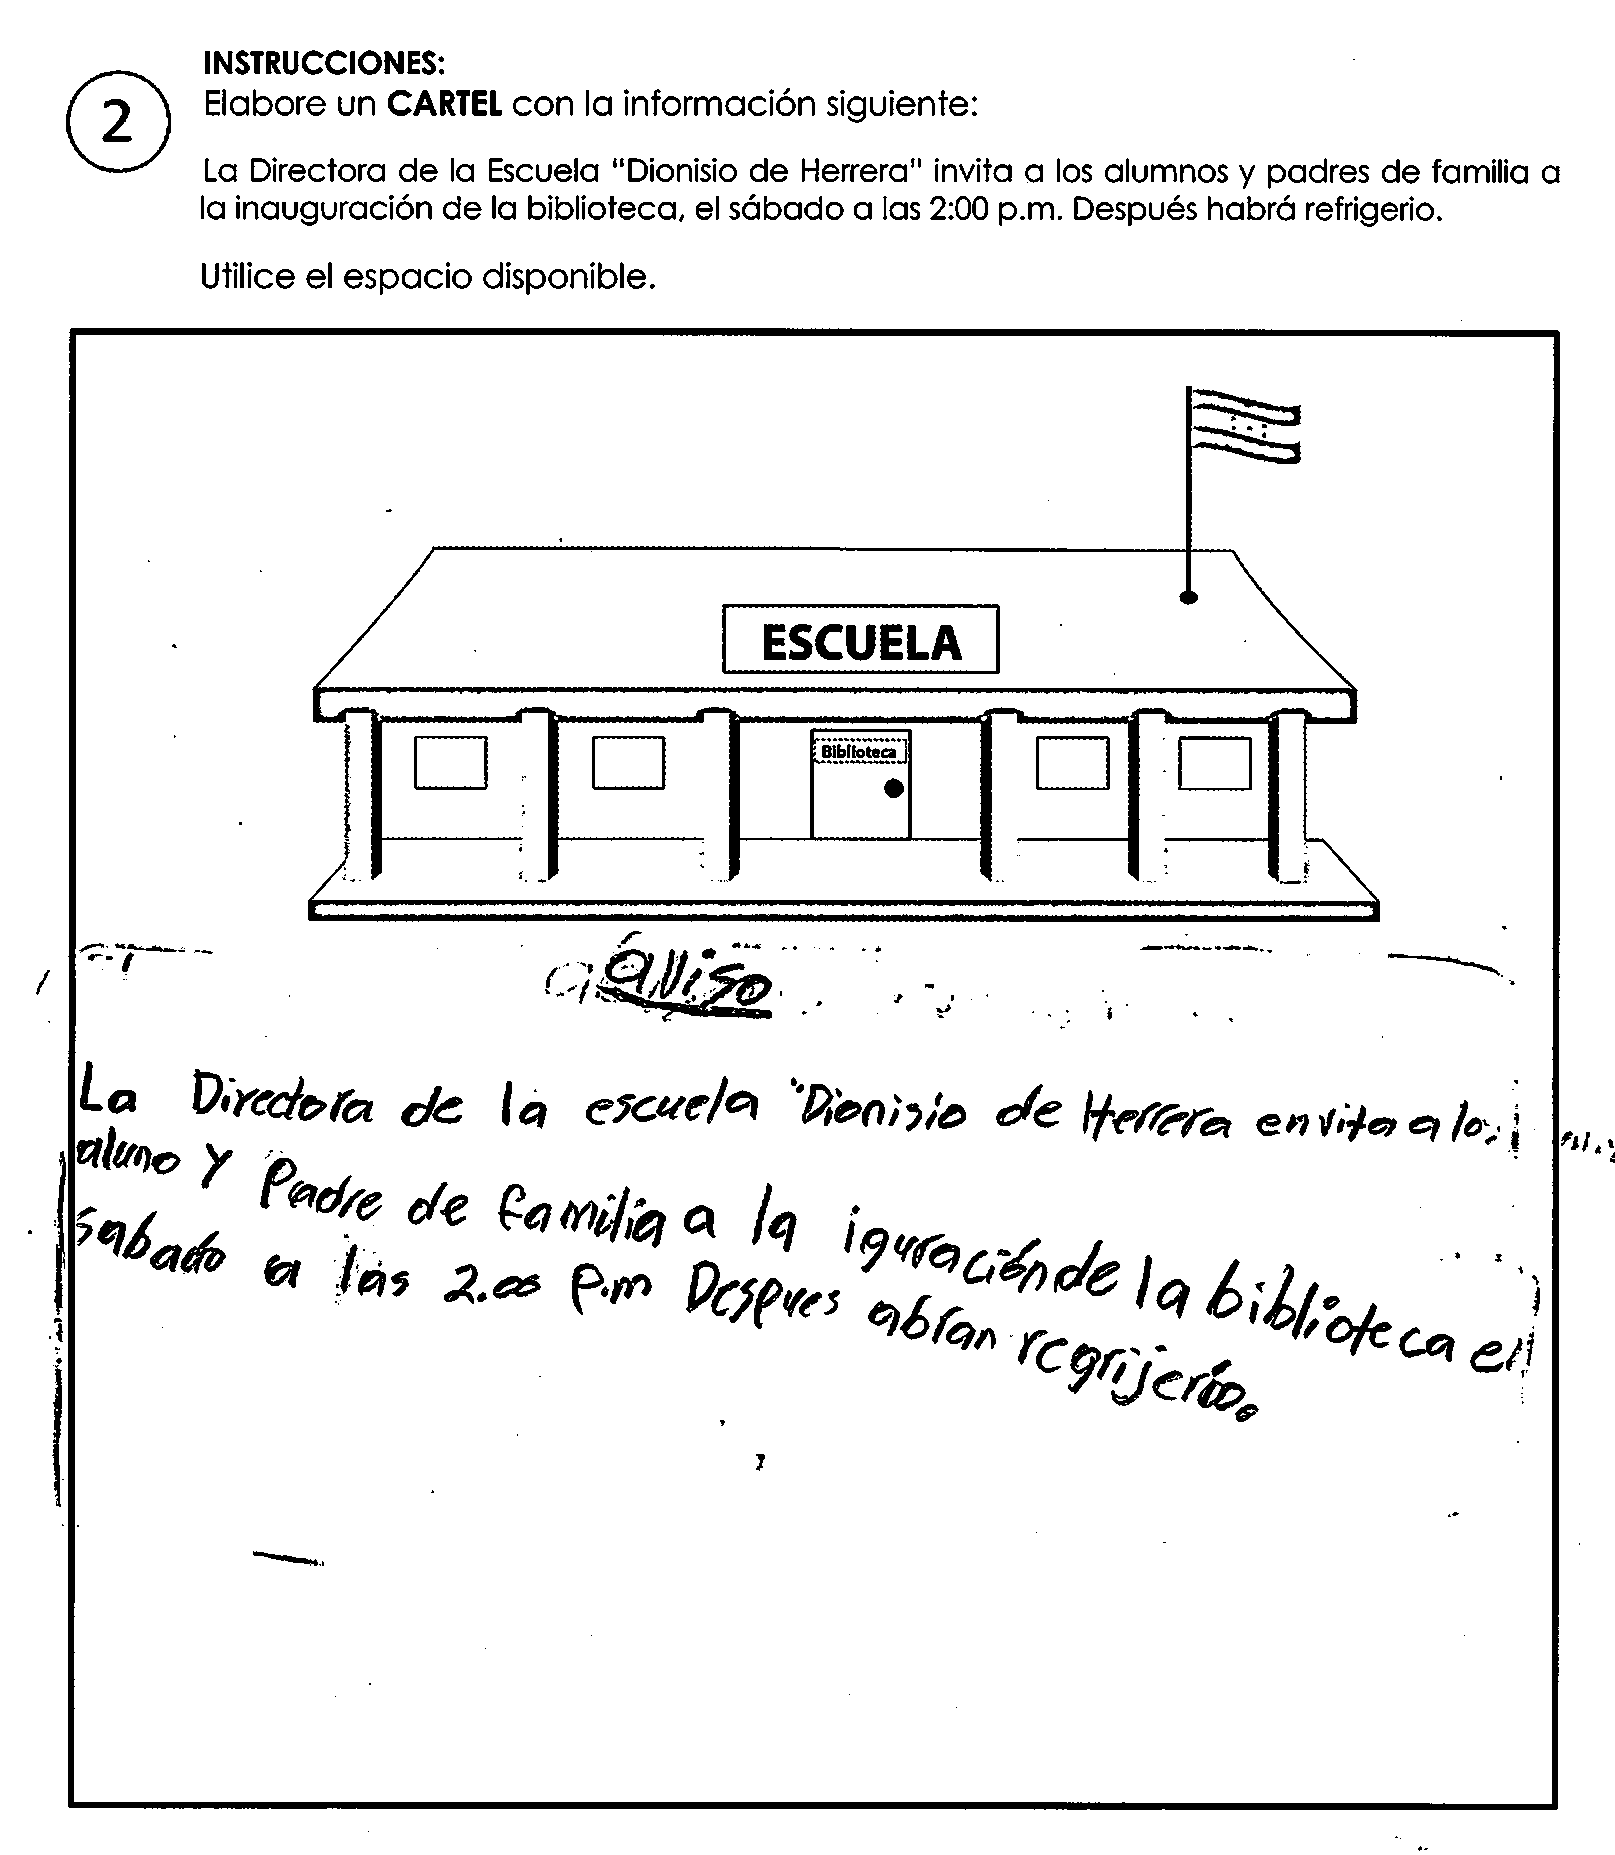 INSTRUCCIONES:
2
Elabore un CARTEL con la información siguiente:
La Directora de la Escuela "Dionisio de Herrera" invita a los alumnos y padres de familia a
la inauguración de la biblioteca, el sábado a las 2:00 p.m. Después habrá refrigerio.
Utilice el espacio disponible.
ESCUELA
Biblioteca
aviso
La Directora de la escuela "Dionisio de Herrera envita a los
aluno y Padre de familia a la iguración de la biblioteca el
sabado a las 2.00 P.m Despues abran regrijerio.